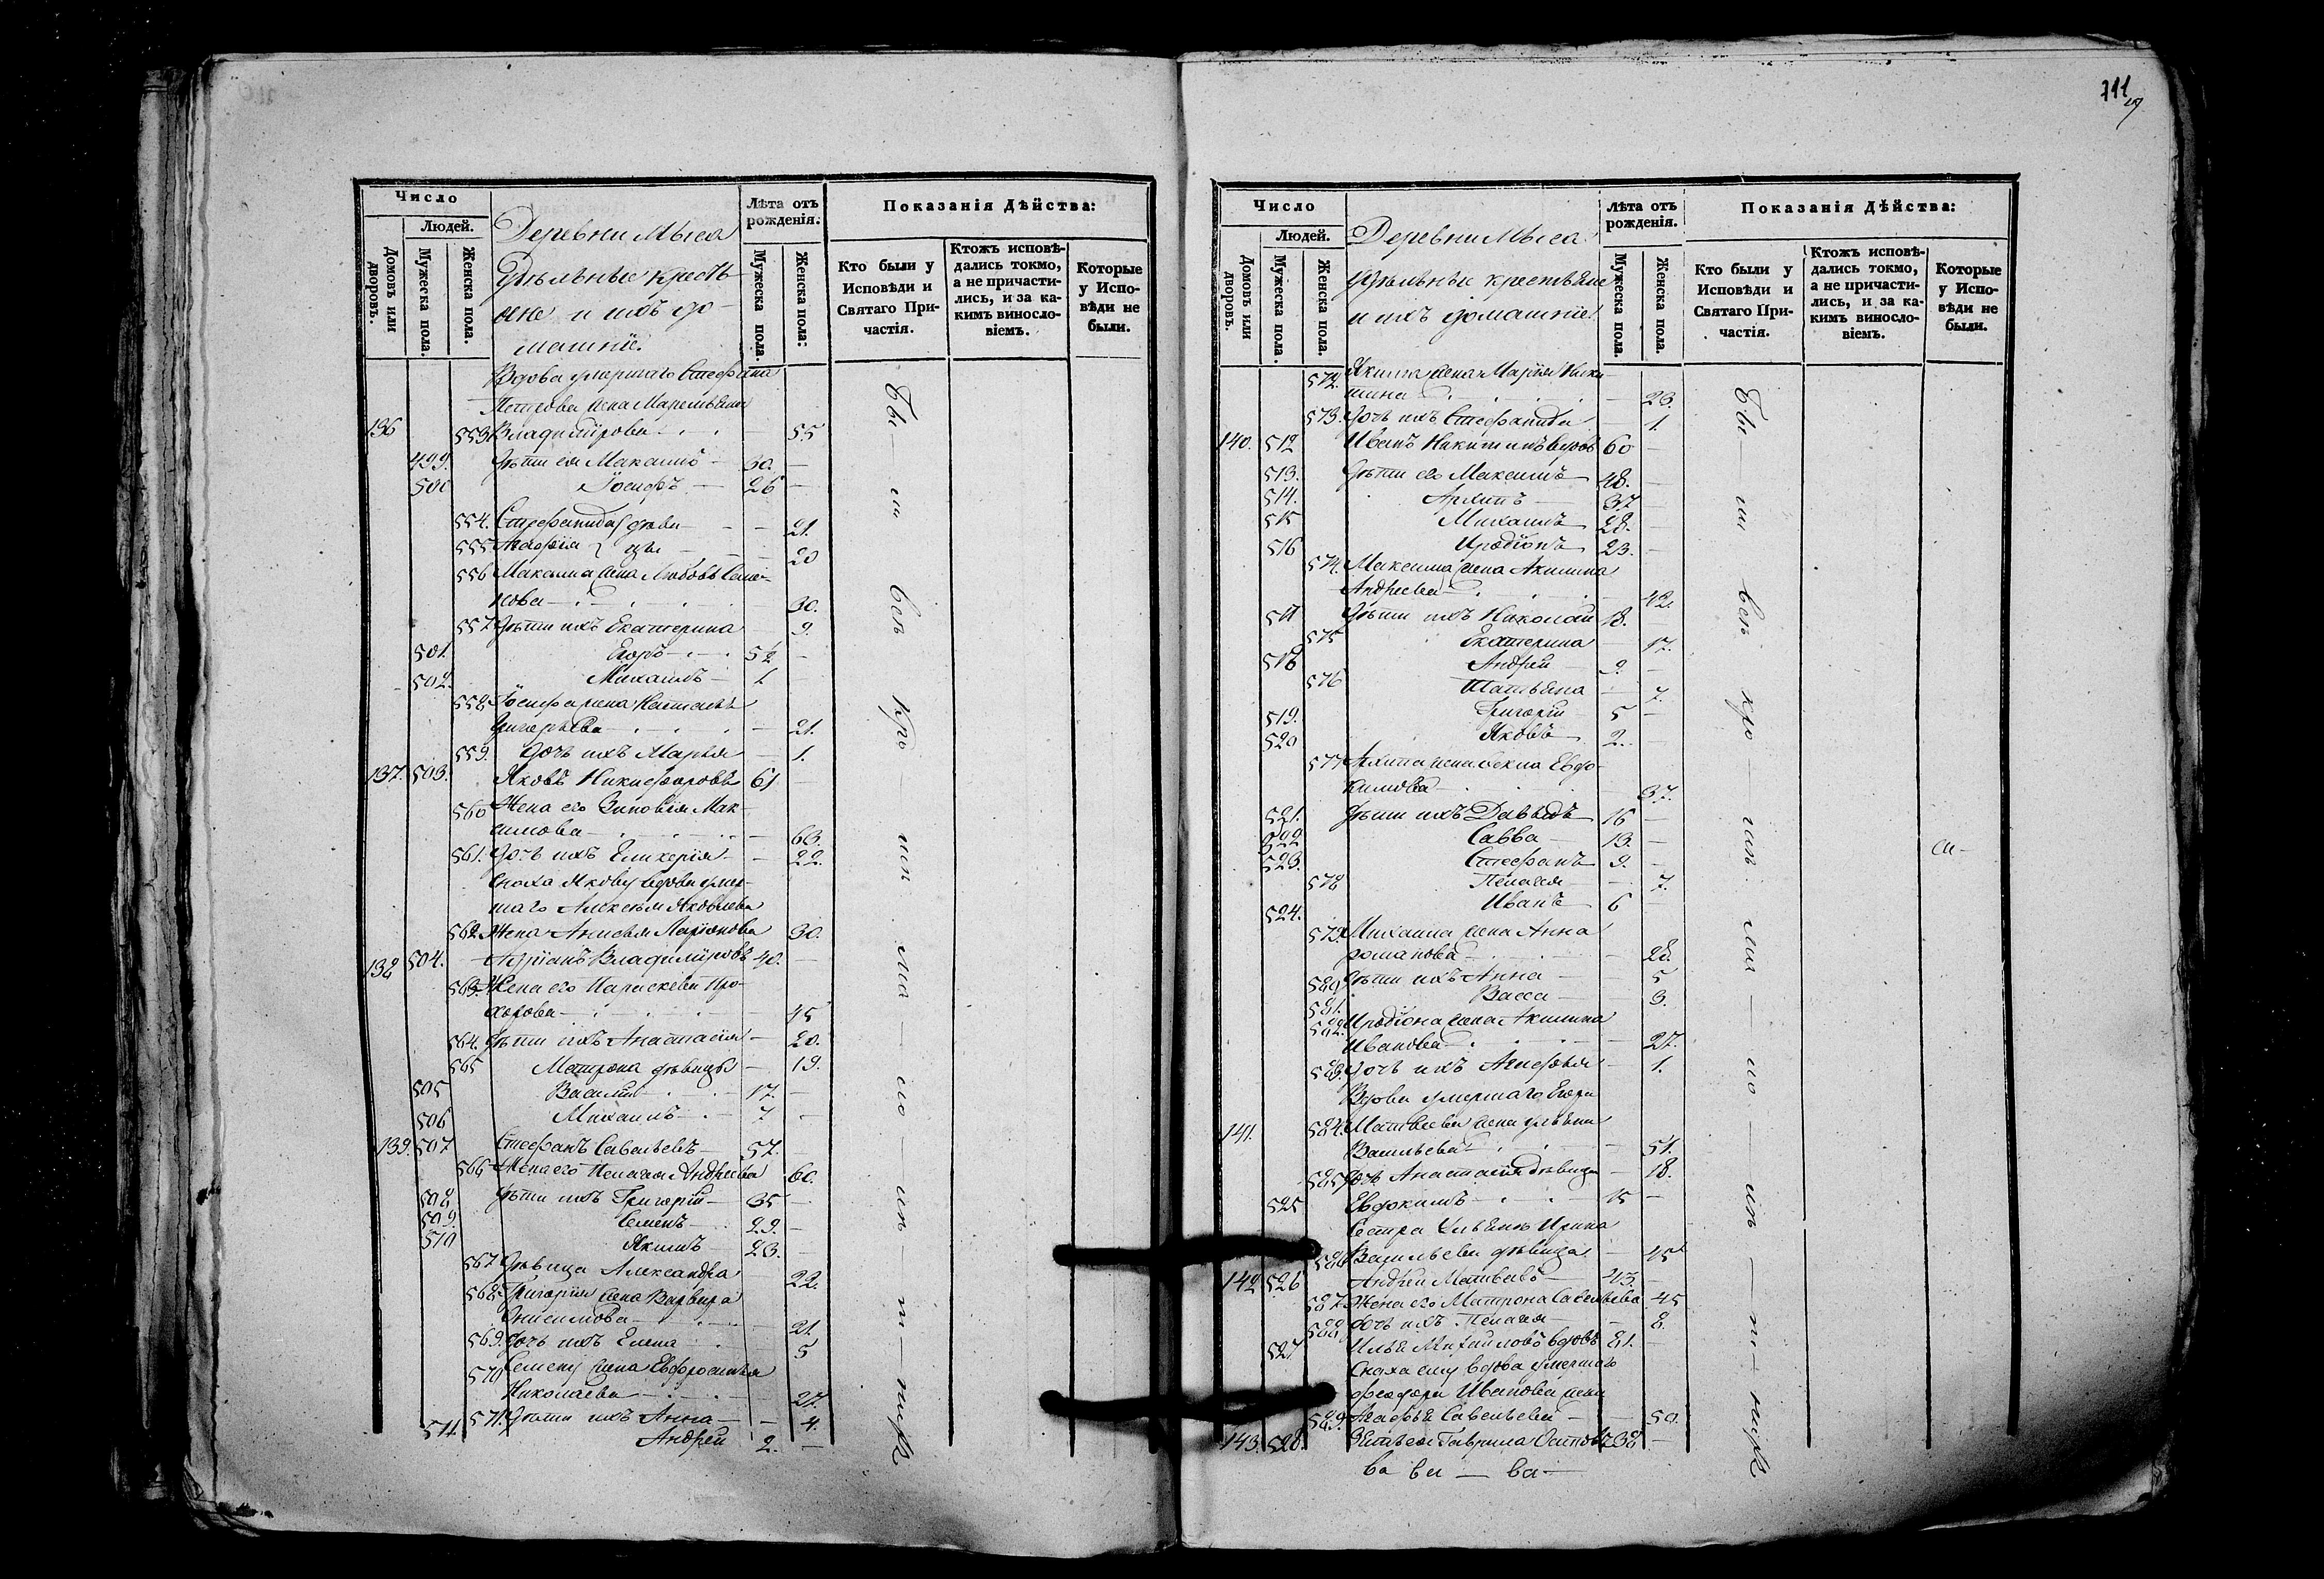 711
Число
Людей.
Домовъ или дворовъ.
Мужеска пола.
Женска пола.
Деревни Мыса
Удѣльные кресть-
яне и ихъ до-
машніе.
Лѣта отъ рожденія.
Мужеска пола.
Женска пола:
Показанія Дѣйства:
Кто были у Исповѣди и Святаго При-частія.
Ктожъ исповѣ-дались токмо, а не причасти-лись, и за ка-кимъ винословіемъ.
Которые у Испо-вѣди не были.
Вдова умершаго Стефана
Петрова жена Маремьяна
136 553 Владимірова 55
499. Дѣти ея Максимъ 30.
500 Іосифъ 26
554. Стефанида дѣви- 21.
555 Агафія цы 20
556 Максима жена Любовь Семе-
нова 30.
557 Дѣти ихъ Екатерина 9.
501. Егоръ 5½
502. Михаилъ 1
558 Іосифа жена Наталья
Григорьева 21.
559. Дочь ихъ Марья 1.
137. 503. Яковъ Никифоровъ 61
560 Жена его Зиновья Мак-
симова 63.
561. Дочь ихъ Гликерія 22.
Сноха Якову вдова умер-
шаго Алексѣя Яковлева
562. Жена Анисья Ларіонова 30.
138 504. Адріанъ Владиміровъ 40.
563. Жена его Параскева Про-
хорова 45
564. Дѣти ихъ Анастасія 20.
565 Матрона дѣвицы 19.
505 Василій 17.
506 Михаилъ 7
139. 507 Стефанъ Савельевъ 57.
566 Жена его Пелагея Андреева 60.
508 Дѣти ихъ Григорій 35
509. Семенъ 29.
510 Якимъ 23.
567 Дѣвица Александра 22.
568. Григорія жена Варвара
Онисимова 21.
569. Дочь ихъ Елена 5
570 Семена жена Евфросинья
Николаева 27.
571. Дѣти ихъ Анна 4.
511. Андрей 2.
Число
Людей.
Домовъ или дворовъ.
Мужеска пола.
Женска пола.
Деревни Мыса
Удѣльные крестьяне
и ихъ домашніе.
Лѣта отъ рожденія.
Мужеска пола.
Женска пола.
Показанія Дѣйства:
Кто были у Исповѣди и Святаго При-частія.
Ктожъ исповѣ-дались токмо, а не причасти-лись, и за ка-кимъ винословіемъ.
Которые у Испо-вѣди не были.
572. Якима жена Марія Ники-
тина 23.
573. Дочь ихъ Стефанида 1.
140. 512 Иванъ Никитинъ вдовъ 60
513. Дѣти его Максимъ 48.
514. Архипъ 37
515 Михаилъ 28.
516 Иродіонъ 23.
574. Максима жена Акилина
Андреева 42.
517 Дѣти ихъ Николай 18.
575 Екатерина 17.
518 Андрей 9.
576 Татьяна 7.
519. Григорій 5
520 Яковъ 2.
577 Архипа жена Фекла Евдо-
кимова 37.
521. Дѣти ихъ Давыдъ 16
522 Савва 13.
523. Стефанъ 9.
578 Пелагея 7.
524. Иванъ 6
579. Михаила жена Анна
Романова 28.
580. Дѣти ихъ Анна 5
581. Васса 3.
582. Иродіона жена Акилина
Иванова 27.
583. Дочь ихъ Агафья 1.
Вдова умершаго Егора
141. 584. Матвѣева жена Ульяна
Васильева 51.
585 Дочь Анастасія дѣвица 18.
525 Евдокимъ 15
Сестра Ульянѣ Ирина
586 Васильева дѣвица 45
142 526 Андрей Матвѣевъ 43.
587 Жена его Матрона Савельева 45
588. Дочь ихъ Пелагея 8.
527 Илья Михайловъ вдовъ 81.
Сноха ему вдова умершаго
Феодора Иванова жена
589. Агафья Савельева 50.
143. 528. Зятья Гаврила Осиповъ 38